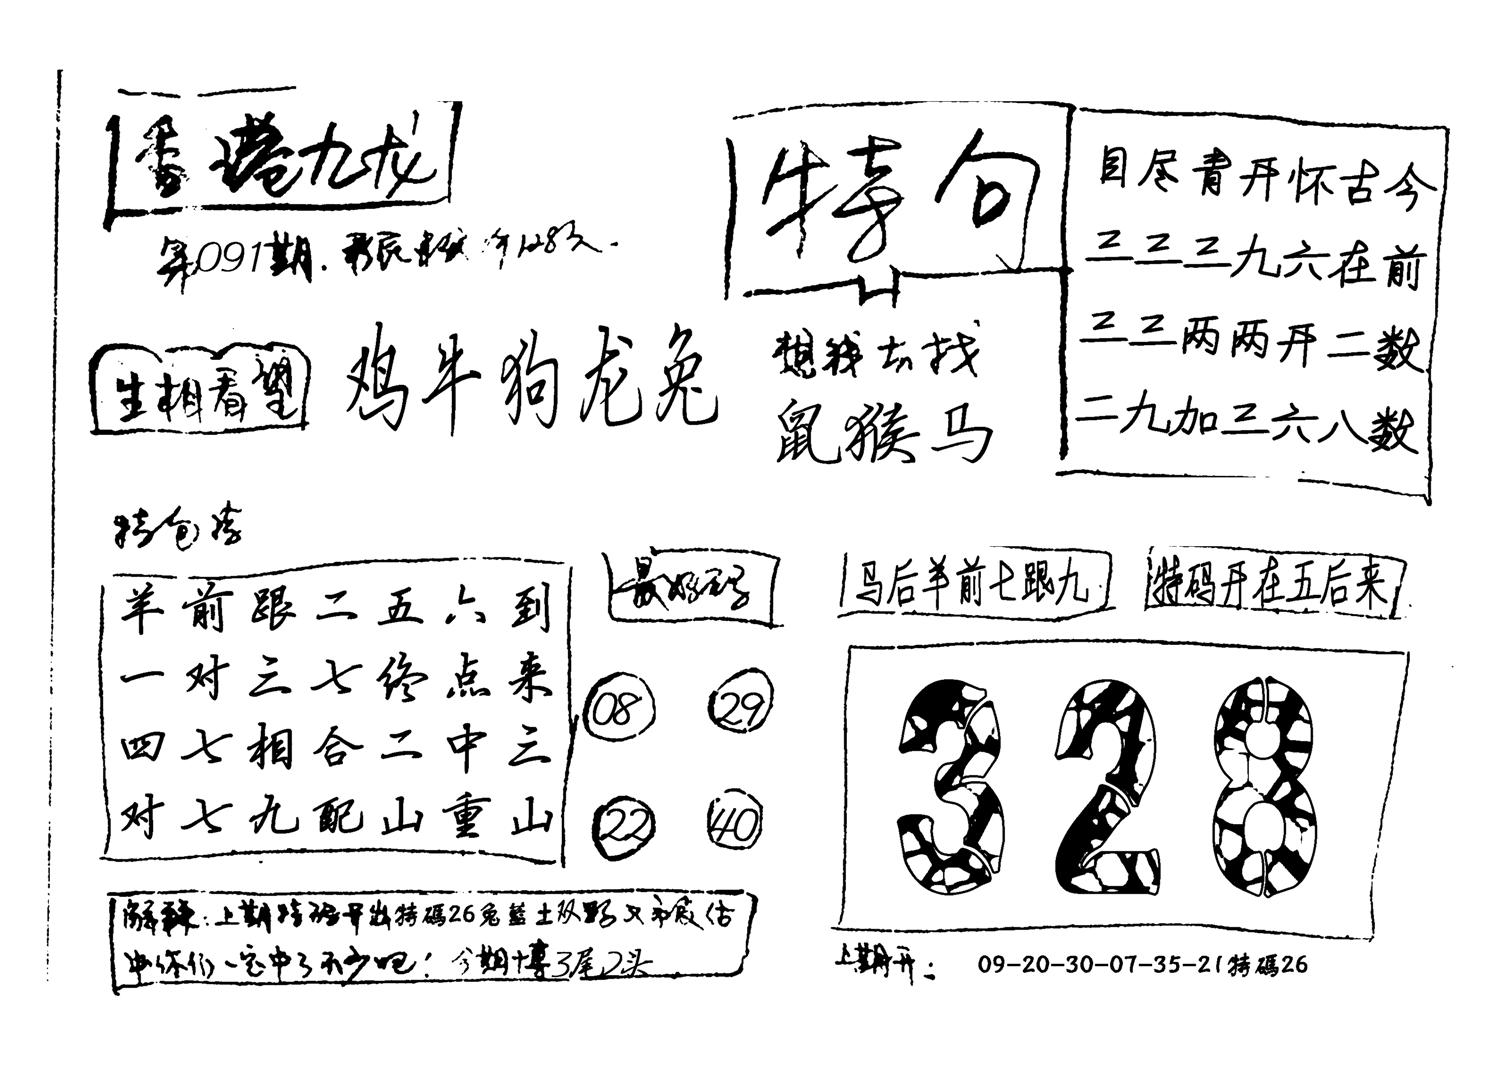 香港九龙
第091期.
生相看望
鸡牛狗龙兔
特句
想钱去找
鼠猴马
目尽青开怀古今
三三三九六在前
三三两两开二数
二九加三六八数
羊前跟二五六到
一对三七终点来
四七相合二中三
对七九配山重山
最好码
08 29
22 40
马后羊前七跟九
特码开在五后来
328
上期特码开出特碼26兔藍土双
中你们一定中了不少吧！今期十博3尾2头
上期开：09-20-30-07-35-21特碼26